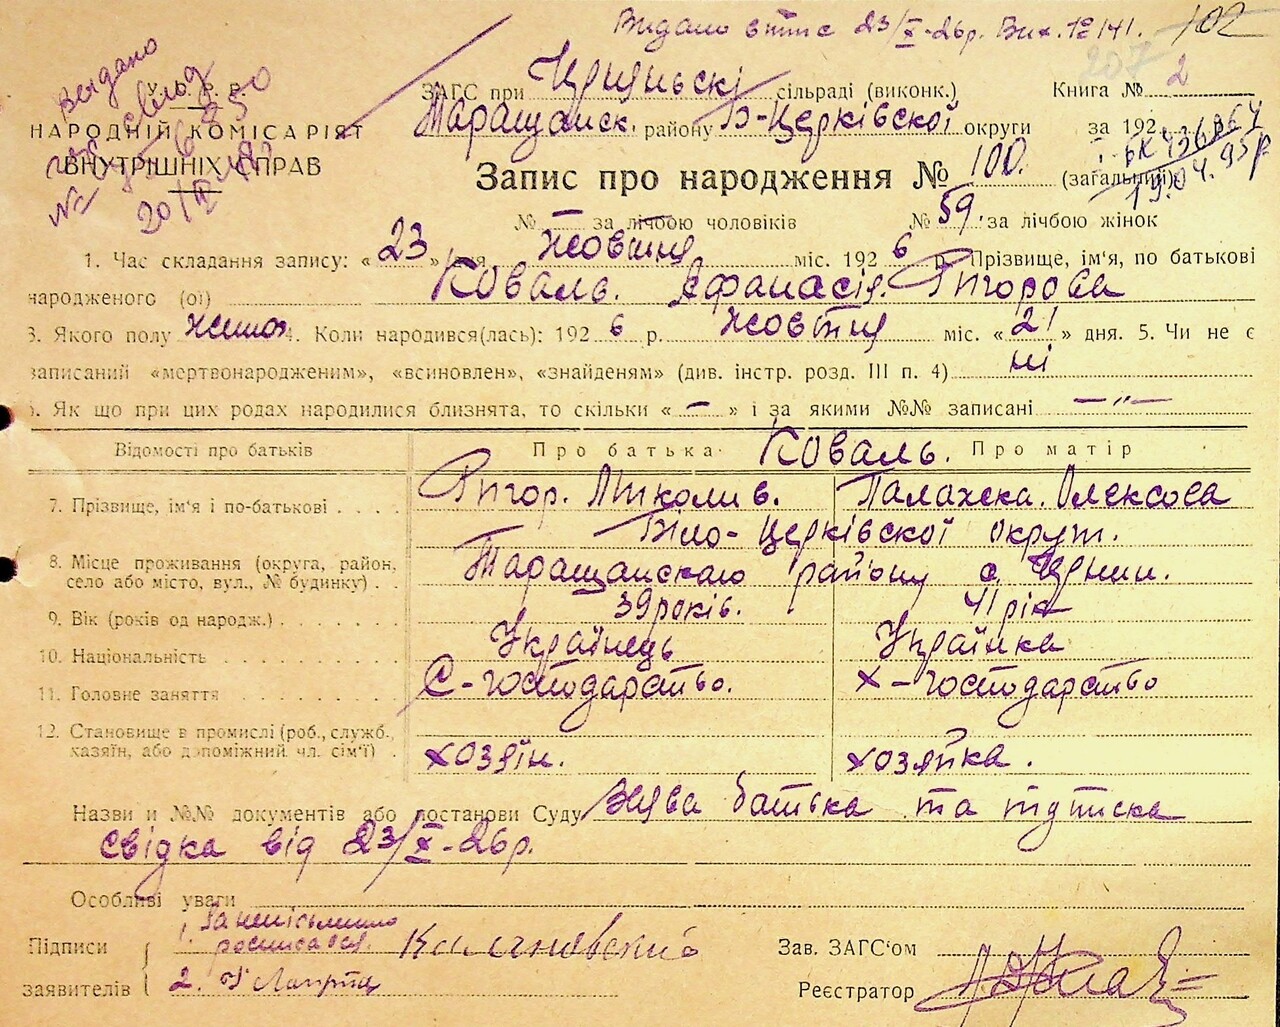 Видано витяг 23/X-26р. Вих. № 141. 102
207 2
Видано
У. С. Р. Р.
НАРОДНІЙ КОМІСАРІЯТ
ВНУТРІШНІХ СПРАВ
№
20/IV
ЗАГС при сільраді (виконк.) Книга № 2
Таращанск. району Б-Церківської округи за 192
Запис про народження № 100. (загальний)
19.04.95р
№ — за лічбою чоловіків № 59. за лічбою жінок
1. Час складання запису: « 23 » дня жовтня міс. 192 6 р. Прізвище, ім'я, по батькові
народженого (ої) Коваль. Афанасія. Ригорова
3. Якого полу жіноч. 4. Коли народився(лась): 192 6 р. жовтня міс. « 21 » дня. 5. Чи не є
записаний «мертвонародженим», «всиновлен», «знайденям» (див. інстр. розд. III п. 4) ні
6. Як що при цих родах народилися близнята, то скільки « — » і за якими №№ записані — „ —
Відомості про батьків Про батька Коваль. Про матір
7. Прізвище, ім'я і по-батькові Ригор. Миколив. Палажека. Олексова
Біло-Церківскої округ.
8. Місце проживання (округа, район, село або місто, вул., № будинку) Таращанскаго району с.
9. Вік (років од народж.) 39 років. 41 рік
10. Національність Українець Українка
11. Головне заняття С-господарство. х-господарство
12. Становище в промислі (роб., служб., хазяїн, або допоміжний чл. сім'ї) хозяїн. хозяйка.
Назви и №№ документів або постанови Суду Заява батька та підписка
свідка від 23/X-26р.
Особливі уваги
Підписи 1. За неписьмінно росписався.
заявителів 2.
Зав. ЗАГС'ом
Реєстратор